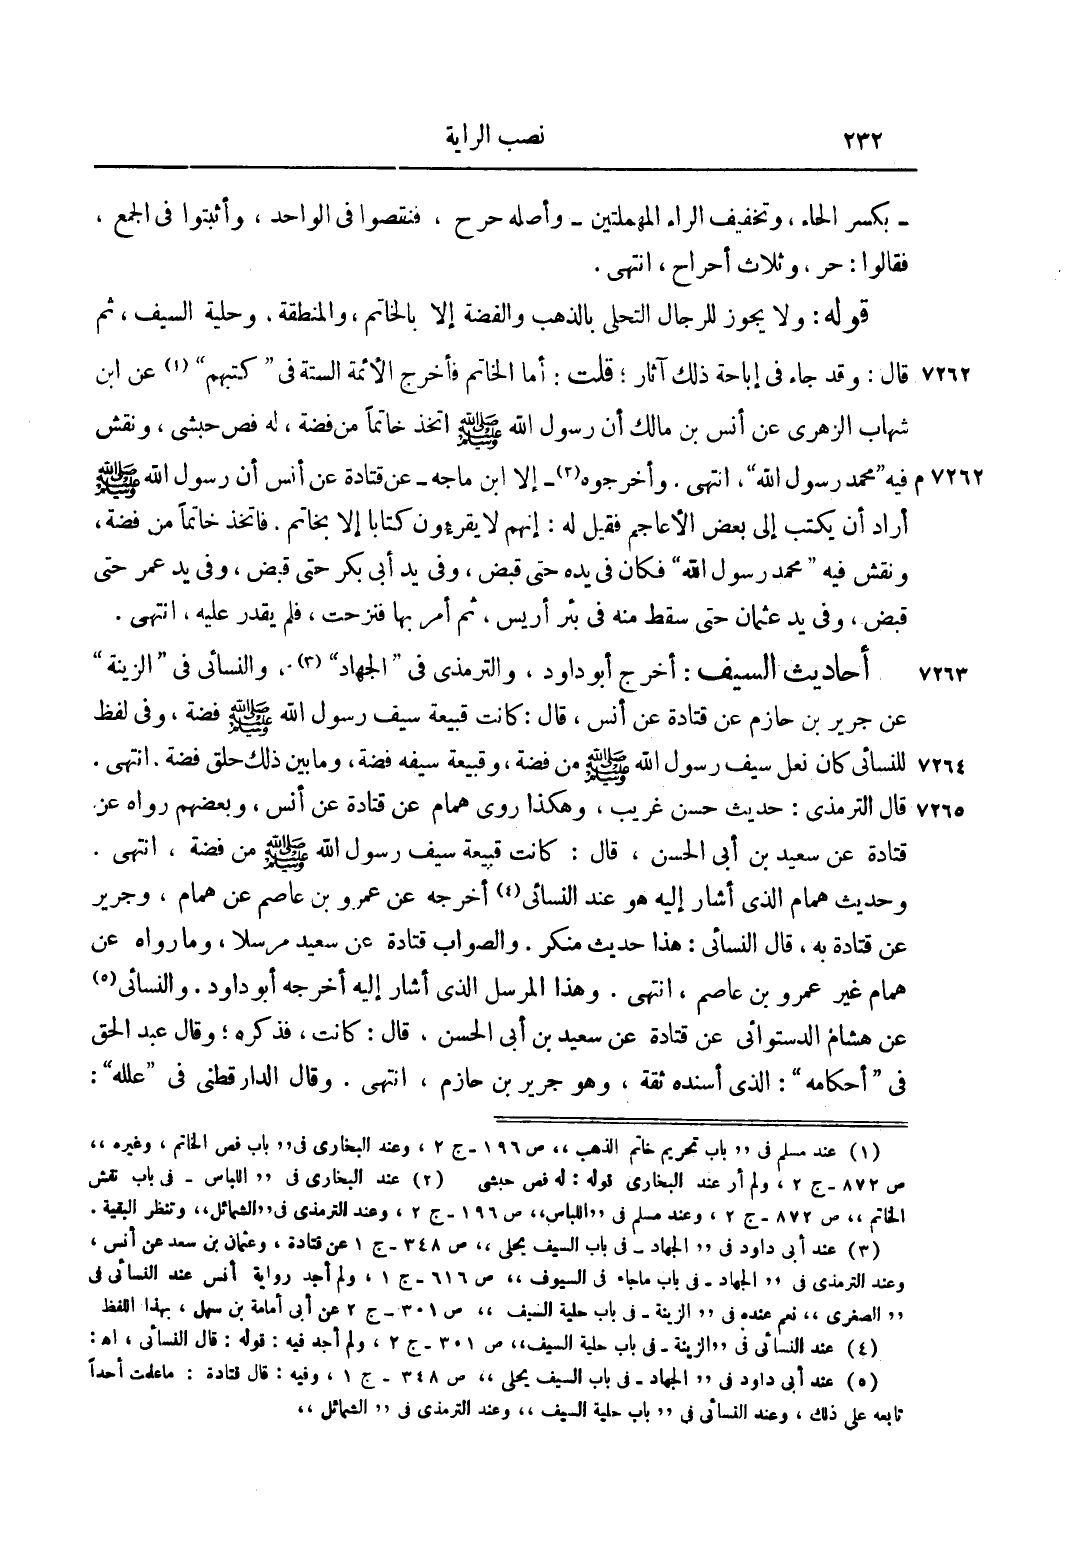 ٢٣٢ نصب الراية
ـ بكسر الحاء ، وتخفيف الراء المهملتين ـ وأصله حرح ، فنقصوا فى الواحد ، وأثبتوا فى الجمع ،
فقالوا : حر ، وثلاث أحراح ، انتهى .
قوله : ولا يجوز للرجال التحلى بالذهب والفضة إلا بالخاتم ، والمنطقة . وحلية السيف ، ثم
٧٢٦٢ قال : وقد جاء فى إباحة ذلك آثار ؛ قلت : أما الخاتم فأخرج الأئمة الستة فى " كتبهم " (١) عن ابن
شهاب الزهرى عن أنس بن مالك أن رسول الله ﷺ اتخذ خاتماً من فضة ، له فص حبشى ، ونقش
٧٢٦٢ م فيه " محمد رسول الله " ، انتهى . وأخرجوه (٢) ـ إلا ابن ماجه ـ عن قتادة عن أنس أن رسول الله ﷺ
أراد أن يكتب إلى بعض الأعاجم فقيل له : إنهم لا يقرءون كتابا إلا بخاتم . فاتخذ خاتماً من فضة ،
ونقش فيه " محمد رسول الله " فكان فى يده حتى قبض ، وفى يد أبى بكر حتى قبض ، وفى يد عمر حتى
قبض ، وفى يد عثمان حتى سقط منه فى بئر أريس ، ثم أمر بها فنزحت ، فلم يقدر عليه ، انتهى .
٧٢٦٣ أحاديث السيف : أخرج أبو داود ، والترمذى فى " الجهاد " (٣) ، والنسائى فى " الزينة "
عن جرير بن حازم عن قتادة عن أنس ، قال : كانت قبيعة سيف رسول الله ﷺ فضة ، وفى لفظ
٧٢٦٤ للنسائى كان نعل سيف رسول الله ﷺ من فضة ، وقبيعة سيفه فضة ، وما بين ذلك حلق فضة . انتهى .
٧٢٦٥ قال الترمذى : حديث حسن غريب ، وهكذا روى همام عن قتادة عن أنس ، وبعضهم رواه عن
قتادة عن سعيد بن أبى الحسن ، قال : كانت قبيعة سيف رسول الله ﷺ من فضة ، انتهى .
وحديث همام الذى أشار إليه هو عند النسائى (٤) أخرجه عن عمرو بن عاصم عن همام ، وجرير
عن قتادة به ، قال النسائى : هذا حديث منكر . والصواب قتادة عن سعيد مرسلا ، وما رواه عن
همام غير عمرو بن عاصم ، انتهى . وهذا المرسل الذى أشار إليه أخرجه أبو داود . والنسائى (٥)
عن هشام الدستوائى عن قتادة عن سعيد بن أبى الحسن . قال : كانت ، فذكره ؛ وقال عبد الحق
فى " أحكامه " : الذى أسنده ثقة ، وهو جرير بن حازم ، انتهى . وقال الدارقطنى فى " علله " :
(١) عند مسلم فى ,, باب تحريم خاتم الذهب ،، ص ١٩٦ ـ ج ٢ ، وعند البخارى فى ,, باب فص الخاتم ، وغيره ،،
ص ٨٧٢ ـ ج ٢ ، ولم أر عند البخارى قوله : له فص حبشى (٢) عند البخارى فى ,, اللباس ـ فى باب نقش
الخاتم ،، ص ٨٧٢ ـ ج ٢ ، وعند مسلم فى ,, اللباس ،، ص ١٩٦ ـ ج ٢ ، وعند الترمذى فى ,, الشمائل ،، وتنظر البقية .
(٣) عند أبى داود فى ,, الجهاد ـ فى باب السيف يحلى ،، ص ٣٤٨ ـ ج ١ عن قتادة ، وعثمان بن سعد عن أنس ،
وعند الترمذى فى ,, الجهاد ـ فى باب ماجاء فى السيوف ،، ص ٦١٦ ـ ج ١ ، ولم أجد رواية أنس عند النسائى فى
,, الصغرى ،، نعم عنده فى ,, الزينة ـ فى باب حلية السيف ،، ص ٣٠١ ـ ج ٢ عن أبى أمامة بن سهل ، بهذا اللفظ
(٤) عند النسائى فى ,, الزينة ـ فى باب حلية السيف ،، ص ٣٠١ ـ ج ٢ ، ولم أجد فيه : قوله : قال النسائى ، اه :
(٥) عند أبى داود فى ,, الجهاد ـ فى باب السيف يحلى ،، ص ٣٤٨ ـ ج ١ ، وفيه : قال قتادة : ماعلمت أحداً
تابعه على ذلك ، وعند النسائى فى ,, باب حلية السيف ،، وعند الترمذى فى ,, الشمائل ،،